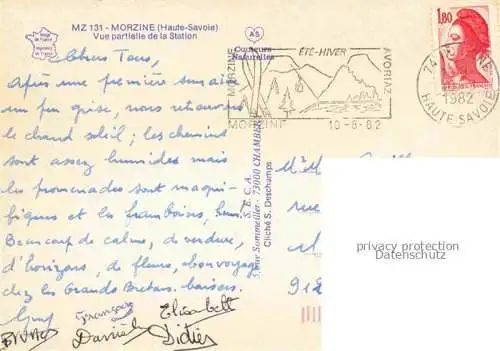 MZ 131 - MORZINE (Haute-Savoie)
Vue partielle de la Station
Image de France
Imprimé en France
A5
Couleurs
Naturelles
Chers Tous,
Après une première semaine
un peu grise, nous retrouvons
le chaud soleil ; les chemins
sont assez humides mais
les promenades sont magni-
fiques et les framboises, hum!
Beaucoup de calme, de verdure,
d'horizons, de fleurs, bon voyage
chez les Grands Bretons. baisers.
Françoise Elisabeth
BRUNO Daniel Didier
S.E.C.A.
5, rue Sommeiller - 73000 CHAMBERY
Cliché S. Deschamps
MORZINE
ÉTÉ-HIVER
AVORIAZ
MORZINE 10-8-82
74
1982
HAUTE SAVOIE
1,80
rue
912
privacy protection
Datenschutz